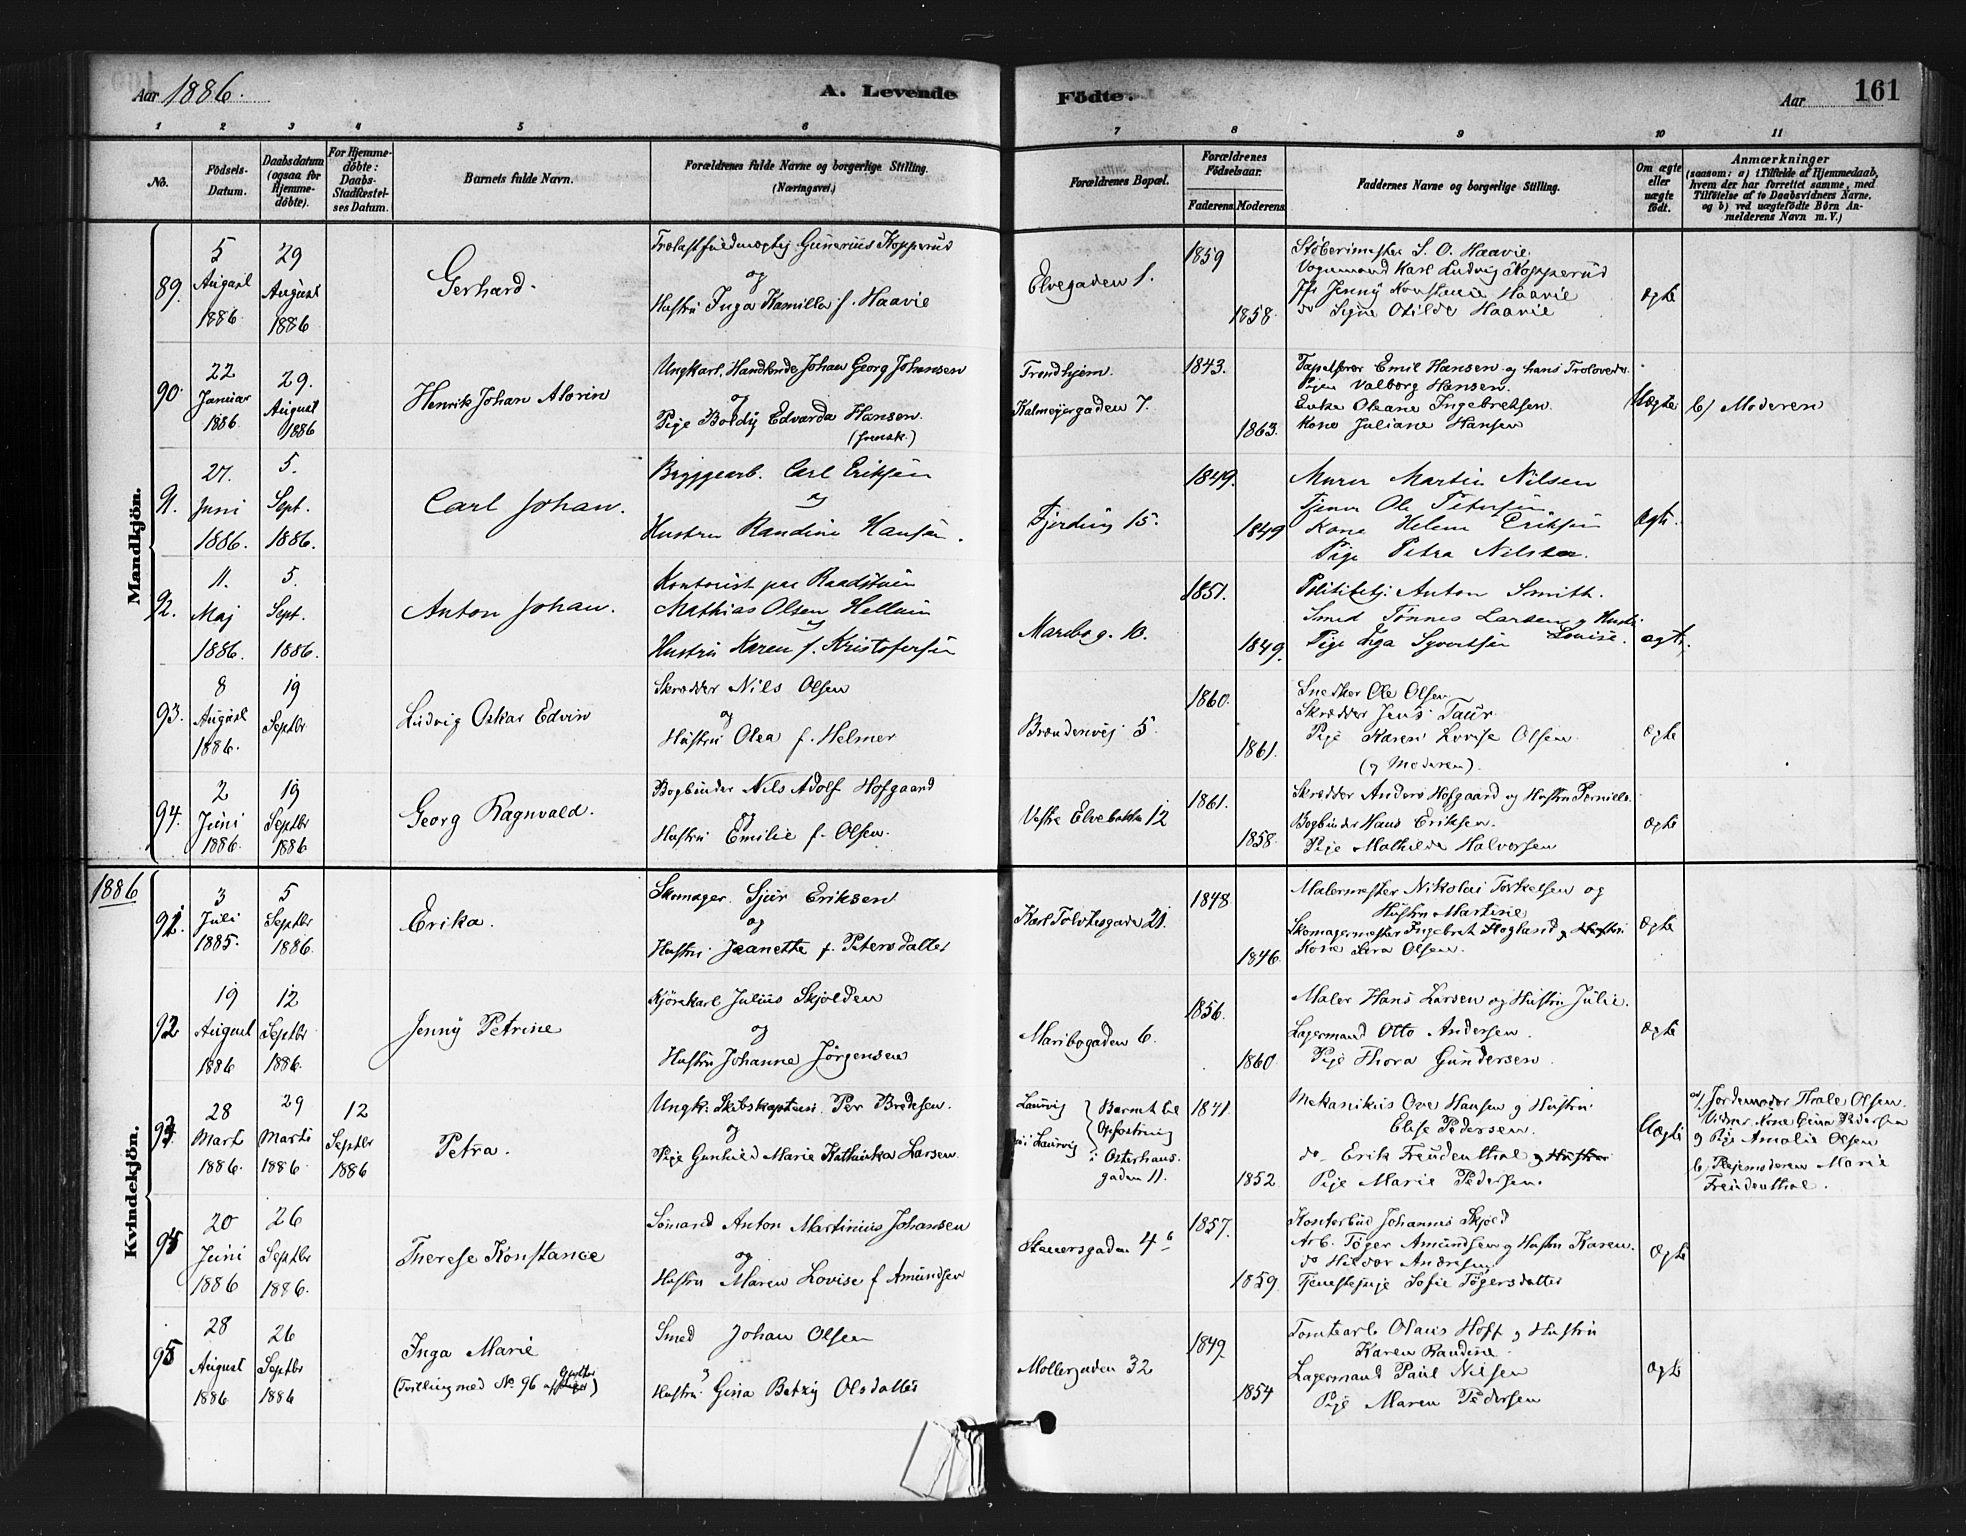 Aar 1886.
A. Levende Födte.
Aar
161
1 2 3 4 5 6 7 8 9 10 11
No.
Födsels-Datum.
Daabsdatum (ogsaa for Hjemme-döbte).
For Hjemme-döbte: Daabs-Stadfæstel-ses Datum.
Barnets fulde Navn.
Forældrenes fulde Navne og borgerlige Stilling. (Næringsvei.)
Forældrenes Bopæl.
Forældrenes Födselsaar.
Faderens. Moderens.
Faddernes Navne og borgerlige Stilling.
Om ægte eller uægte födt.
Anmærkninger
(saasom: a) i Tilfælde af Hjemmedaab,
hvem der har forrettet samme, med
Tilföielse af to Daabsvidners Navne.
og b) ved uægtefödte Börn An-
melderens Navn m. V.)
Mandkjön.
89.
5 August 1886
29 August 1886
Gerhard.
Trælastfuldmægtig Gunerius Kopperud
og
Hustru Inga Kamilla f. Haavie
Elvegaden 1.
1859
1858.
Støberimester S. O. Haavie
Vognmand Karl Ludvig Kopperud
Jfr Jenny Konstanse Haavie
do Signe Otilde Haavie
Ægte
90.
22 Januar 1886.
29. August 1886
Henrik Johan Alorin
Ungkarl. Handlende Johan Georg Johansen
og
Pige Boldy Edvarda Hansen.
(svensk.)
Trondhjem.
Kalmeyergaden 7.
1843.
1863.
Emil Hansen og hans Trolovede
Pigen Valborg Hansen.
Enke Oleane Ingebretsen.
Kone Juliane Hansen
Uægte
b/ Moderen
91.
27. Juni 1886.
5. Sept. 1886.
Carl Johan.
Bryggearb. Carl Eriksen
og
Hustru Randine Hansen.
Fjerding 15.
1849.
1849
Murer Martin Nilsen
Tjener Ole Petersen.
Kone Helene Eriksen
Pige Petra Nilsen.
Ægte.
92.
11. Maj 1886.
5. Sept. 1886.
Anton Johan.
Kontorist paa Raadstuen
Mathias Olsen Hellum
og
Hustru Karen f. Kristofersen
Maribog. 10.
1851.
1849.
Polititetj. Anton Smith.
Smed Tønnes Larsen og Hustr.
Louise.
Pige Inga Syvertsen
ægte.
93.
8 August 1886.
19 Septbr
Ludvig Oskar Edvin
Skrædder Nils Olsen
og
Hustru Olea f. Helmer
Brændenvej 5.
1860.
1861.
Snedker Ole Olsen
Skrædder Jens Taur.
Pige Karen Lovise Olsen.
(og Moderen).
Ægte
94.
2 Juni 1886.
19 Septbr 1886
Georg Ragnvald.
Bogbinder Nils Adolf Hofgaard
og
Hustru Emilie f. Olsen.
Vestre Elvebakke 12
1861.
1858.
Skrædder Anders Hofgaard og Hustru Pernille.
Bogbinder Hans Eriksen.
Pige Mathilde Halvorsen
Ægte
1886
Kvindekjön.
91.
3 Juli 1885.
5 Septbr 1886.
Erika.
Skomager. Sjur Eriksen
og
Hustru Jeanette f. Petersdatter
Karl Tolvtesgade 21.
1848
1846.
Malermester Nikolai Torkelsen og
Hustru Martine
Skomagermester Ingebret Hoglund og Hustru
Kone Lera Olsen.
Ægte
92
19 August 1886
12 Septbr 1886.
Jenny Petrine
Kjørekarl Julius Skjolden
og
Hustru Johanne Jørgensen
Maribogaden 6.
1856.
1860.
Maler Hans Larsen og Hustru Julie.
Lagermand Otto Andersen.
Pige Thora Gundersen.
Ægte
93.
28 Marts 1886.
29 Marts 1886.
12 Septbr 1886
Petra.
Ungk. Skibskaptein. Per Bredesen.
og
Pige Gunhild Marie Kathinka Larsen
Laurvig
Laurvig
Barnet til
Opfostring
i Osterhaus-
gaden 11.
1841.
1852
Mekanikus Ove Hansen og Hustru
Elise Pedersen.
do Erik Freudenthal og Hustru
Pige Marie Pedersen.
Uægte
a/ Jordemoder Olsen.
Vidner Kone Gina Pedersen
og Pige Amalie Olsen
b/ Plejemoderen Marie
Freudenthal.
95
20 Juni 1886
26 Septbr 1886.
Therese Konstance
Sømand Anton Martinius Johansen
og
Hustru Maren Lovise f Amundsen
Stenersgaden 4 b
1857.
1859.
Kontorbud Johannes Skjold
Arb. Tøger Amundsen og Hustru Karen.
do Hildor Andresen
Tjenestepige Sofie Tøgersdatter
Ægte
95
28 August 1886
26 Septbr 1886
Inga Marie
(Tvilling med No. 96)
Smed Johan Olsen
og
Hustru Gina Betzy Olsdatter
Møllergaden 32
1849.
1854
Tomtearb Olaus Hoff og Hustru
Karen Randine.
Lagermand Paul Nilsen
Pige Maren Pedersen
Ægte